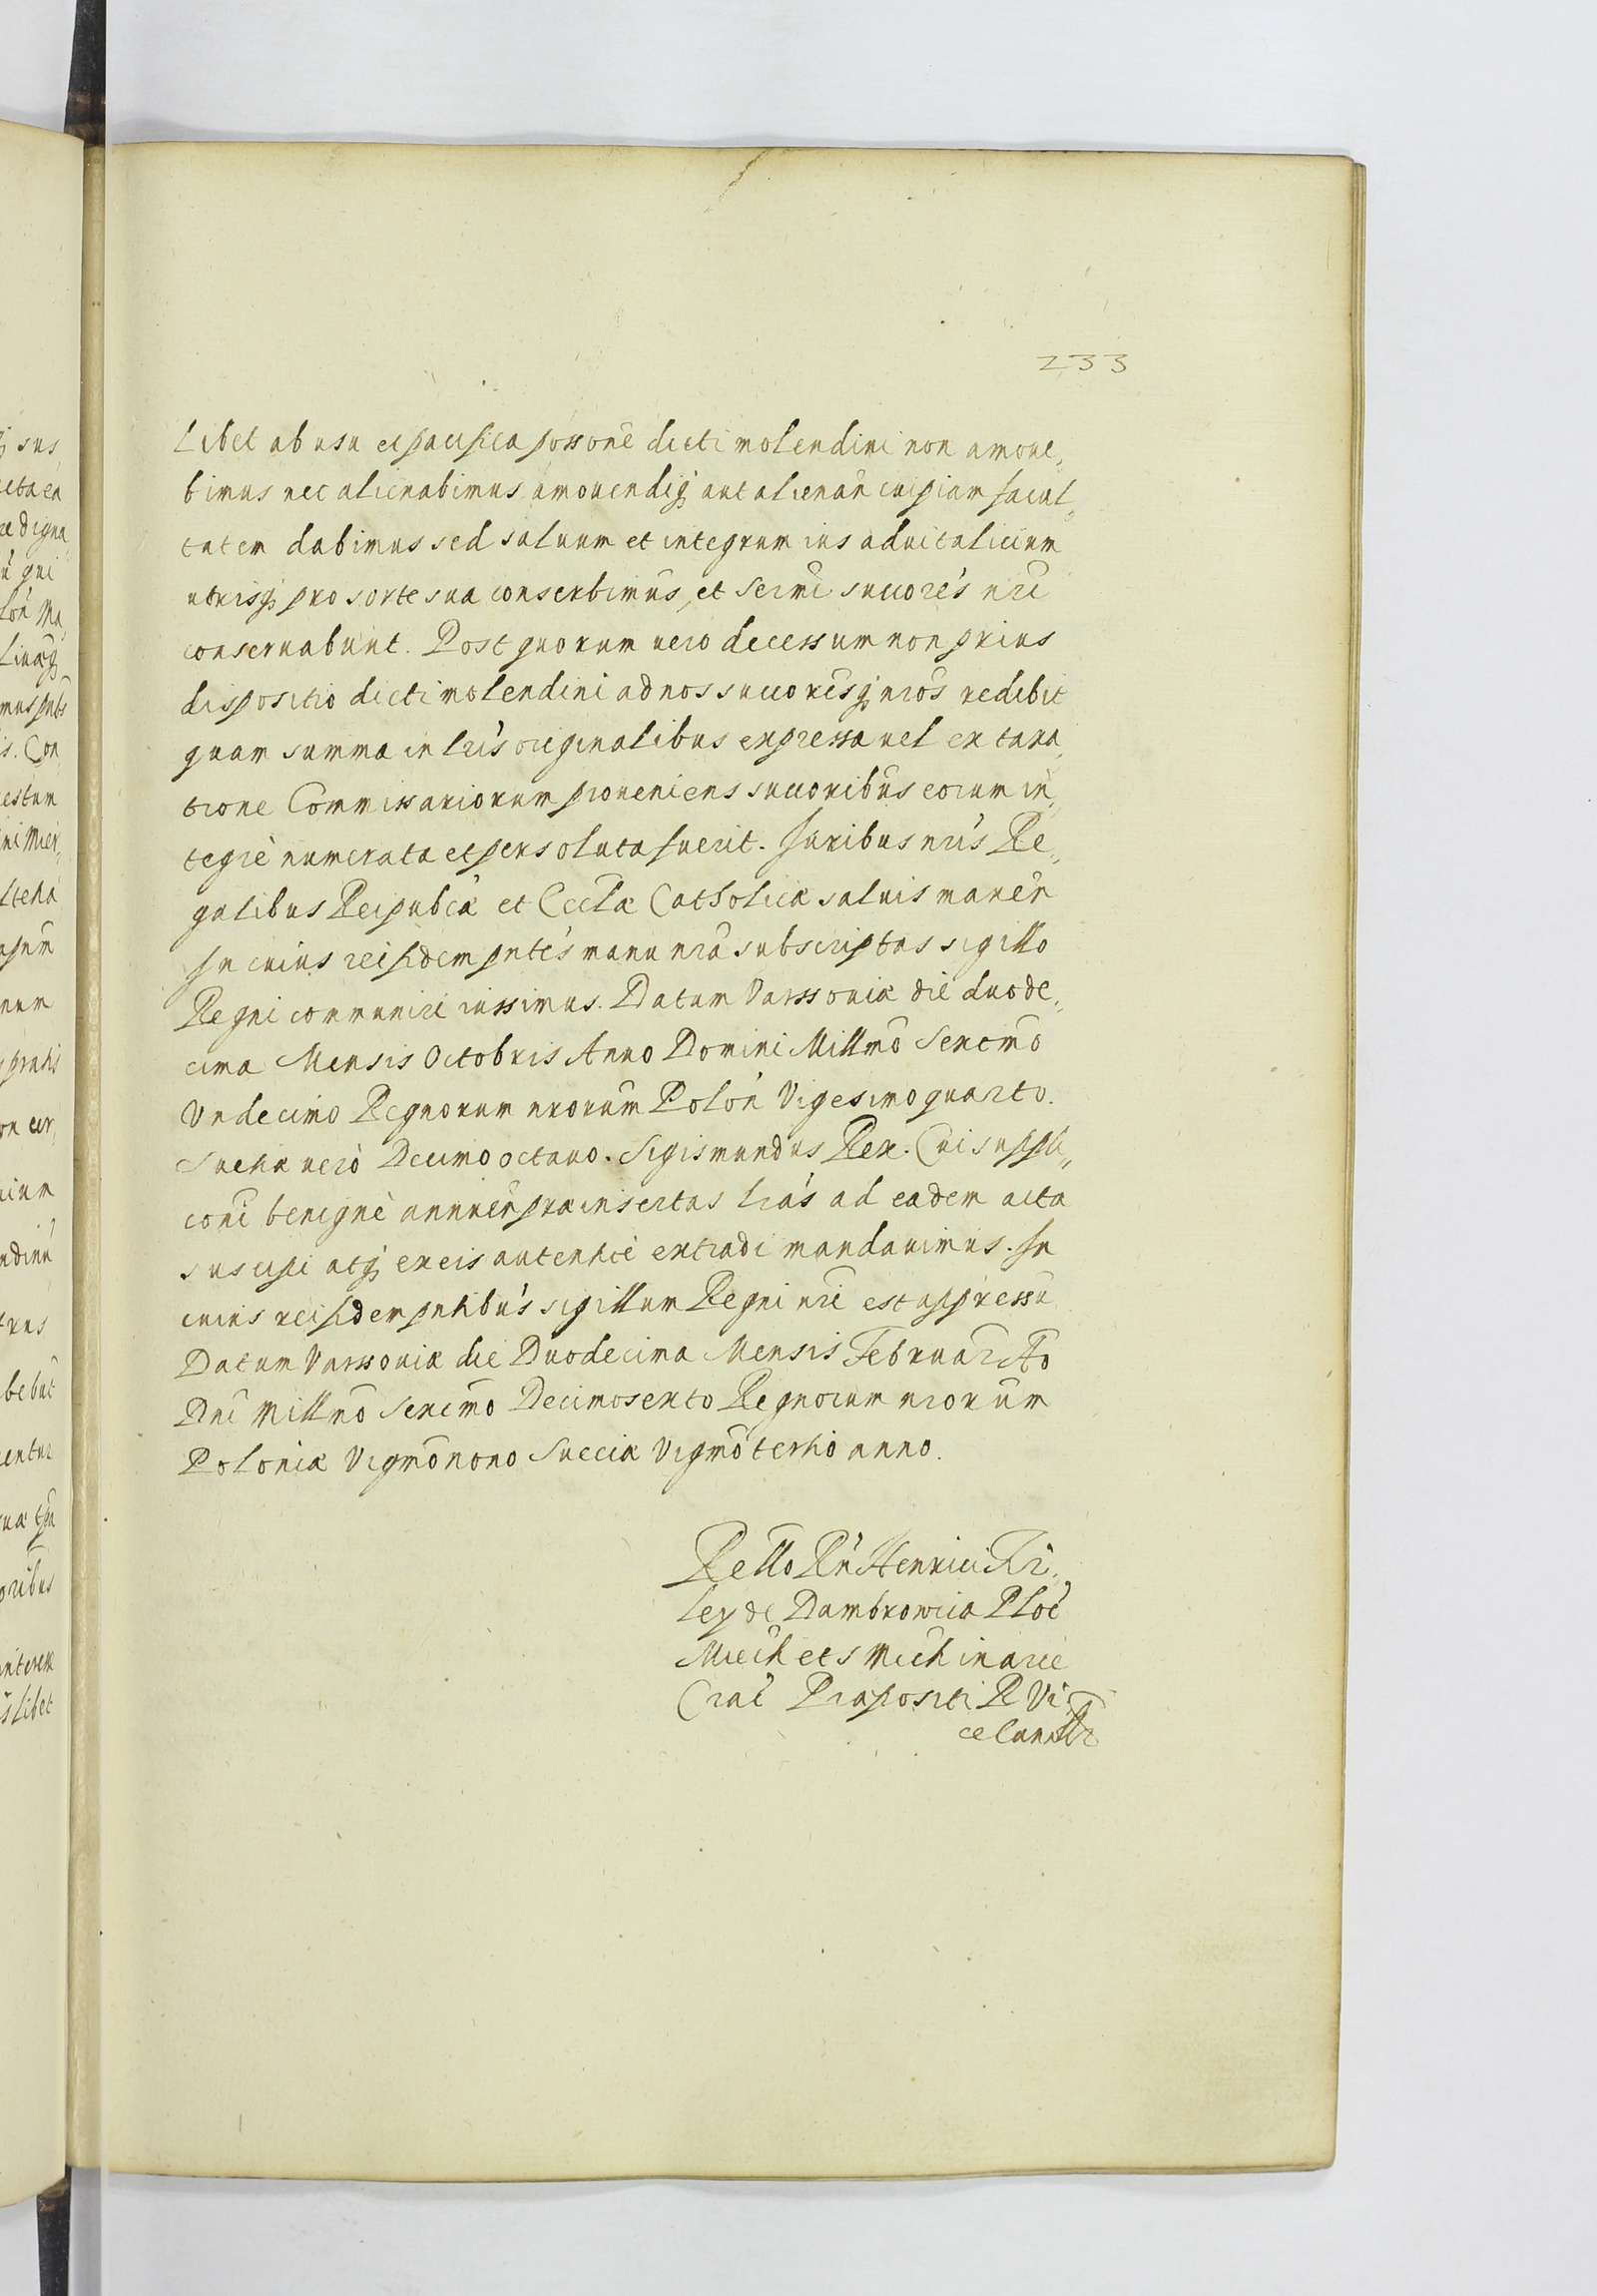 233
libet ab usu et pacifica possone dicti molendini non amove„
bimus nec alienabimus amouendiq; aut alienan cuipiam facul„
tatem dabimus sed saluum et integrum ius aduitalicium
utrisq; pro sorte sua conserbimus, et Sermi succores nri
conseruabunt. Post quorum uero decessum non prius
dispositio dicti molendini ad nos succoresq; nros redibit
quam summa in lris originalibus expressa uel ex taxa„
tione Commissariorum proueniens succoribus eorum in„
tegre numerata et persoluta fuerit. Juribus nris Re„
galibus Reipubcæ et Ecclæ Catholicæ saluis manen
In cuius rei fidem pntes manu nra subscriptas sigillo
Regni communiri iussimus. Datum Varssouiæ die duode„
cima Mensis Octobris Anno Domini Millmo Sexcmo
Vndecimo Regnorum nrorum Polon Vigesimo quarto.
Sueciæ uero Decimo octauo. Sigismundus Rex. Cui suppli„
coni benigne annuen præinsertas lras ad eadem acta
suscipi atq; ex eis autentice extradi mandauimus. In
cuius rei fidem pntibus sigillum Regni nri est appressu
Datum Varssouiæ die Duodecima Mensis Februar Ao
Dni Millmo Sexcmo Decimosexto Regnorum nrorum
Poloniæ Vigmo nono Sueciæ Vigmo tertio anno.
Rello Rn Henrici Fir„
ley de Dambrowica Ploc
Miech et S Mich in arce
Crac Præpositi R Vi„
cecancellr
q; sus
æ digna
qui
lon Ma
mus pubs
is. Con
estum
num
cium
trus
oribus
interesse
libet